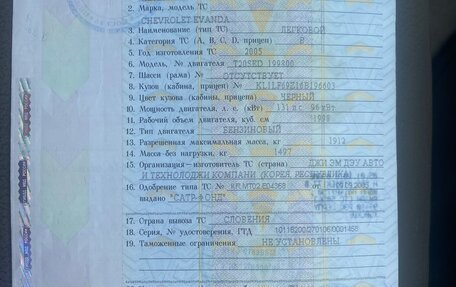 2. Марка, модель ТС
CHEVROLET EVANDA
3. Наименование (тип ТС) ЛЕГКОВОЙ
4. Категория ТС (А, В, С, D, прицеп) В
5. Год изготовления ТС 2005
6. Модель, № двигателя T20SED 199800
7. Шасси (рама) № ОТСУТСТВУЕТ
8. Кузов (кабина, прицеп) №
9. Цвет кузова (кабины, прицепа) ЧЕРНЫЙ
10. Мощность двигателя, л. с. (кВт) 131 л.с. 96 кВт
11. Рабочий объем двигателя, куб. см 1998
12. Тип двигателя БЕНЗИНОВЫЙ
13. Разрешенная максимальная масса, кг 1912
14. Масса без нагрузки, кг 1497
15. Организация—изготовитель ТС (страна) ДЖИ ЭМ ДЭУ АВТО
И ТЕХНОЛОДЖИ КОМПАНИ (КОРЕЯ, РЕСПУБЛИКА)
16. Одобрение типа ТС №
выдано "САТР-ФОНД"
17. Страна вывоза ТС СЛОВЕНИЯ
18. Серия, № удостоверения, ГТД 10116200/270106/0001458
19. Таможенные ограничения НЕ УСТАНОВЛЕНЫ